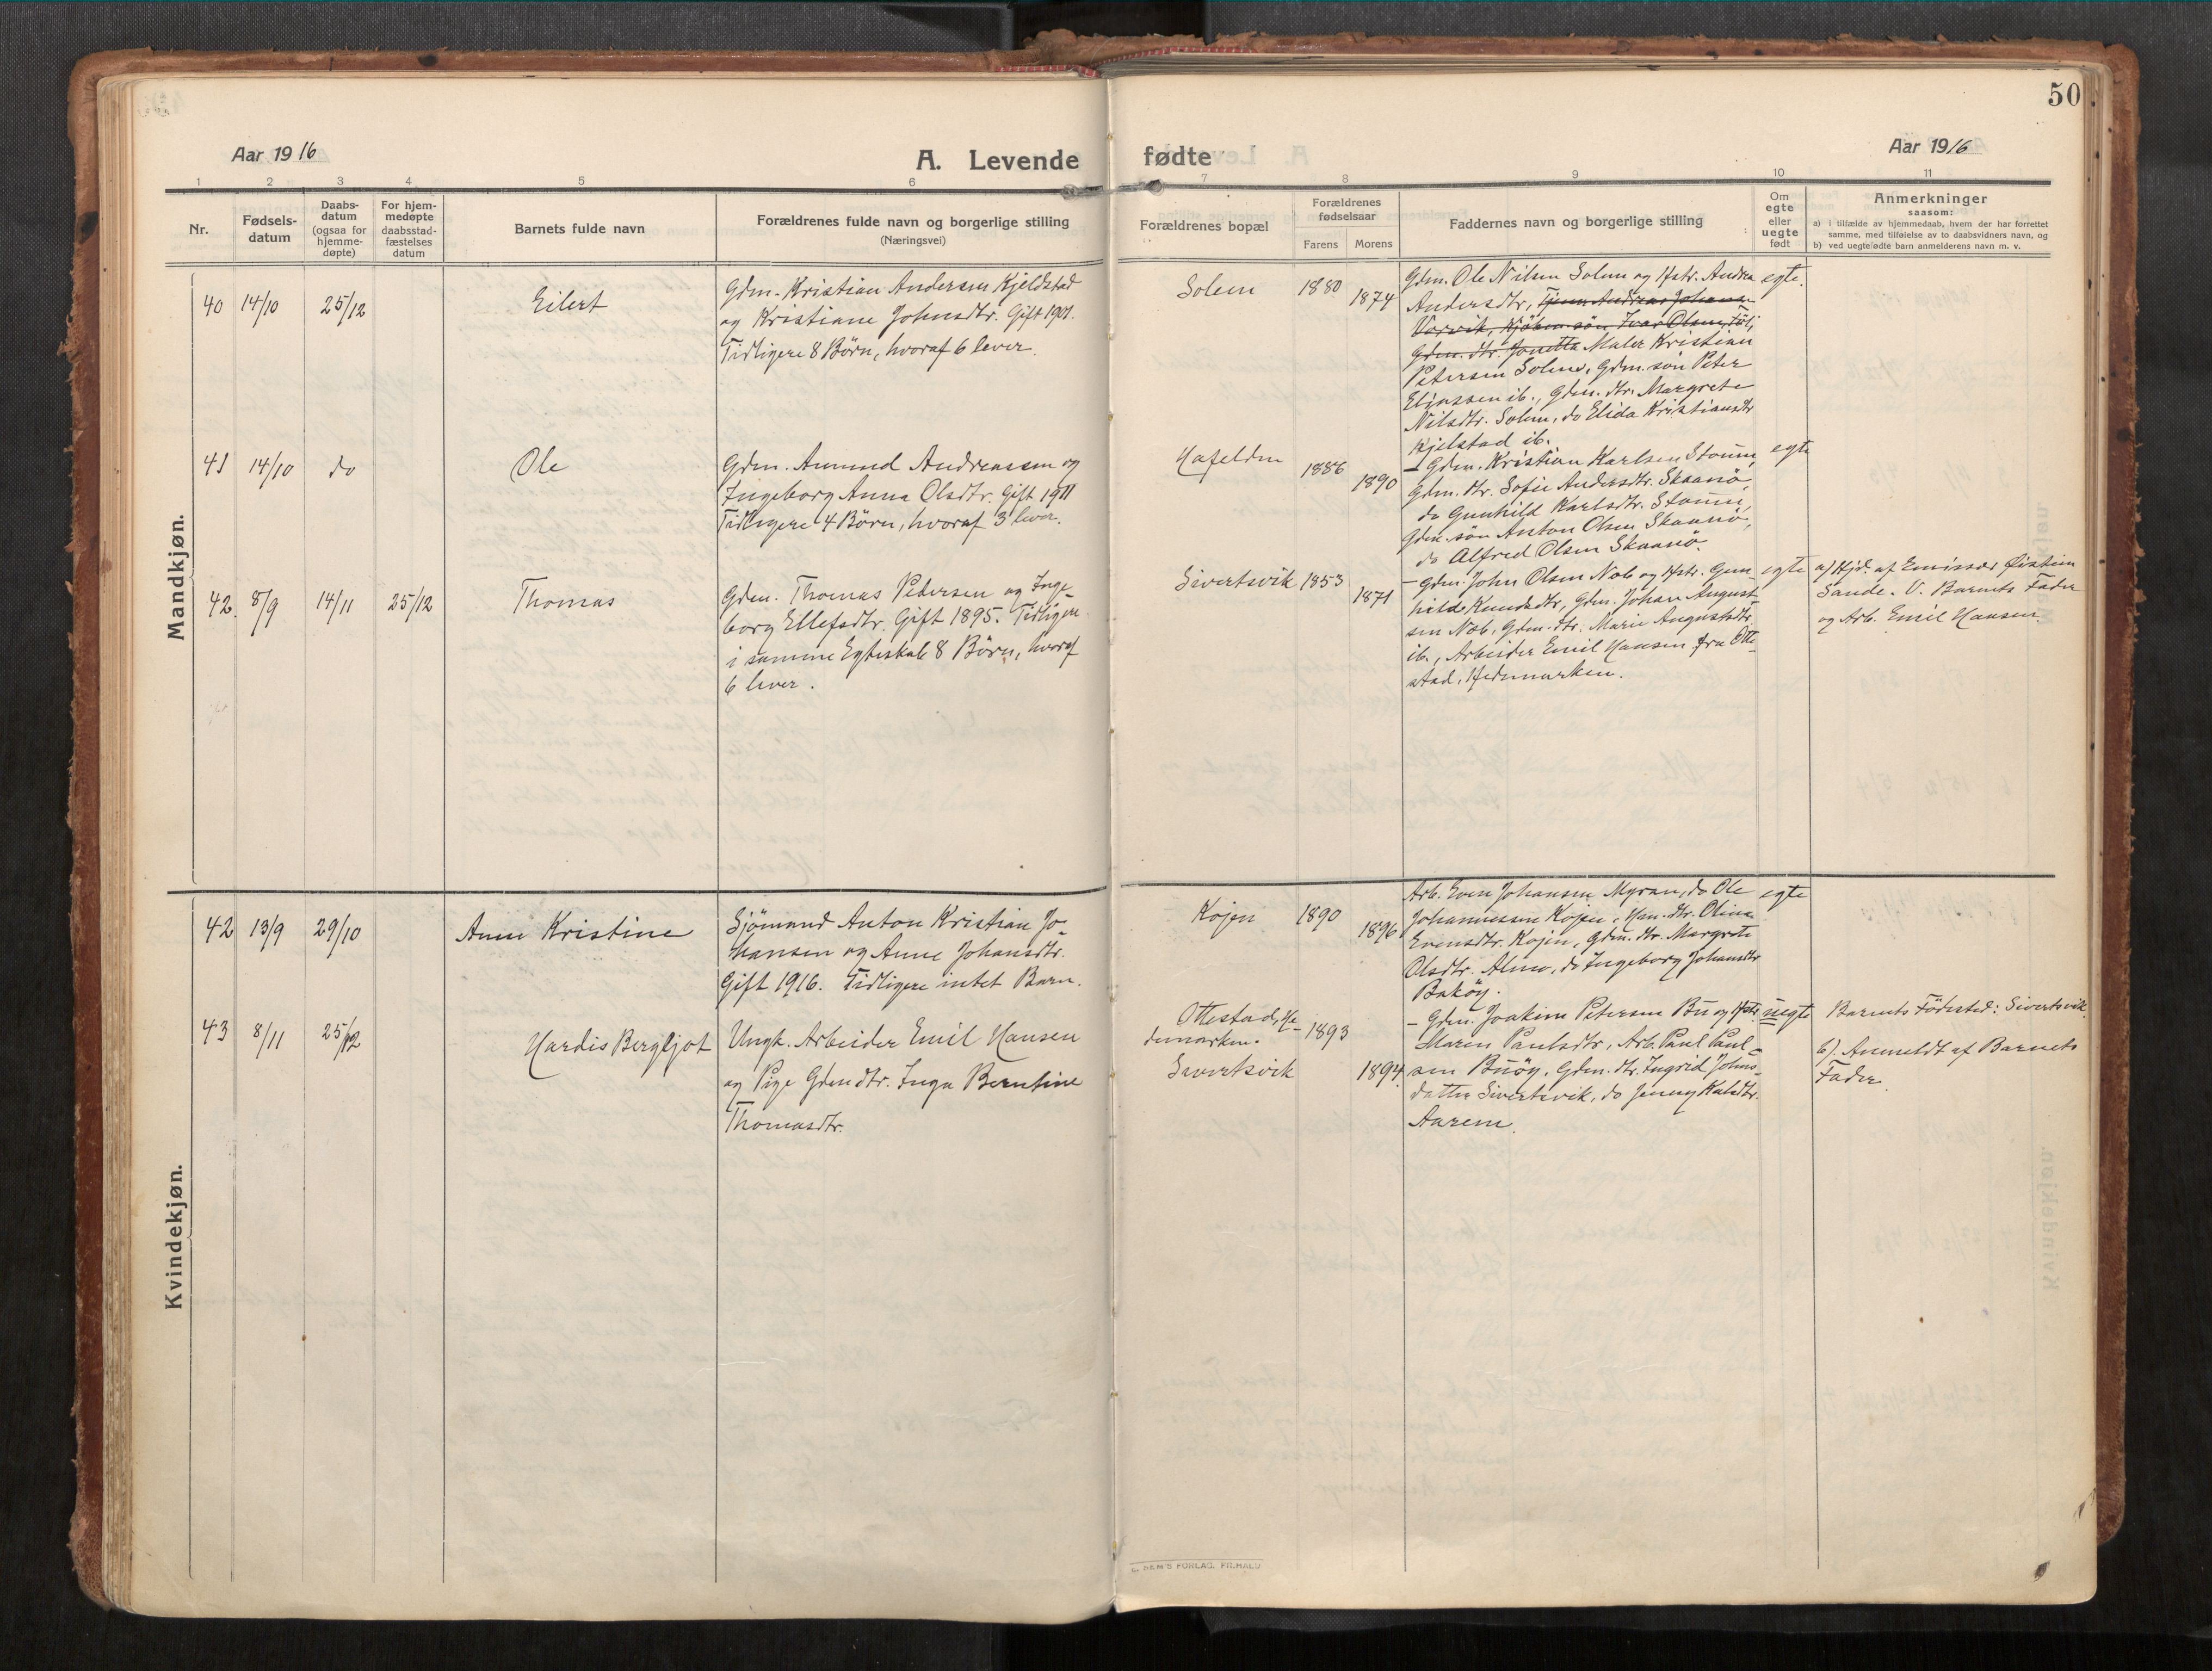 50
Aar 1916
A. Levende
fødte
Aar 1916
1 2 3 4 5 6 7 8 9 10 11
Nr.
Fødsels-
datum
Daabs-
datum
(ogsaa for
hjemme-
døpte)
For hjem-
medøpte
daabsstad-
fæstelses
datum
Barnets fulde navn
Forældrenes fulde navn og borgerlige stilling
(Næringsvei)
Forældrenes bopæl
Forældrenes
fødselsaar
Farens Morens
Faddernes navn og borgerlige stilling
Om
egte
eller
uegte
født
Anmerkninger
saasom:
a) i tilfælde av hjemmedaab, hvem der har forrettet
samme, med tilføielse av to daabsvidners navn, og
b) ved uegtefødte barn anmelderens navn m. v.
Mandkjøn.
40 14/10 25/12 Eilert
Gdm. Kristian Andersen Kjeldstad
og Kristiane Johnsdtr. Gift 1901.
Tidligere 8 Börn, hvoraf 6 lever.
Solem 1880 1874
Gdm. Ole Nilsen Solem og Hstr. Andrea
Andersdtr, Tjener Andreas Johansen
Vorvik, Kjöbm. sön Ivar Olsen,
Gdm. dtr. Jonetta Maler Kristian
Petersen Solem, Gdm. sön Peter
Eliassen ib., Gdm. dtr. Margrete
Nilsdtr. Solem, do Elida Kristiansdtr
Kjelstad ib.
egte.
41 14/10 do Ole
Gdm. Amund Andreassen og
Ingeborg Anna Olsdtr. Gift 1911
Tidligere 4 Börn, hvoraf 3 lever.
Hafeldm 1886 1890
– Gdm. Kristian Karlsen Stoum,
Gdm. dtr. Sofie Andersdtr. Skaanö,
do Gunhild Karlsdtr. Stoum,
Gdm. sön Anton Olsen Skaanö,
do Alfred Olsen Skaanö.
egte
42. 8/9 14/11 25/12 Thomas
Gdm. Thomas Petersen og Inge-
borg Ellefsdtr. Gift 1895. Tidligere
i samme Egteskab 8 Börn, hvoraf
6 lever.
Sivertsvik 1853 1871
– Gdm. John Olsen Nob og Hstr. Gun-
hild Knudsdtr, Gdm. Johan August-
sen Nob, Gdm. dtr. Marie Augustsdtr.
ib., Arbeider Emil Hansen fra Otte-
stad, Hedemarken.
egte
a) Hjd. af Emissær Øistein
Sande. V. Barnets Fader
og Arb. Emil Hansen.
Kvindekjøn.
42 13/9 29/10 Anne Kristine
Sjömand Anton Kristian Jo-
hansen og Anne Johansdtr.
Gift 1916. Tidligere intet Barn.
Kojen 1890 1896
Arb. Even Johansen Myran, do Ole
Johannessen Kojen, Hm. dtr. Olina
Evensdtr. Kojen, Gdm. dtr. Margrete
Olsdtr. Almo, do Ingeborg Johansdtr
Baköy.
egte
43 8/11 25/12 Hardis Bergljot
Ungk. Arbeider Emil Hansen
og Pige Gdmdtr. Inga Berntine
Thomasdtr.
Ottestad, He-
demarken. 1893
Sivertsvik 1894
– Gdm. Joakim Petersen Bu og Hstr.
Maren Paulsdtr, Arb. Paul Paul-
sen Buöy, Gdm. dtr. Ingrid Johns-
datter Sivertsvik, do Jenny Kalsdtr.
Aarem.
uegte
Barnets Födested: Sivertsvik.
b). Anmeldt af Barnets
Fader.
SEM'S FORLAG. FR.HALD